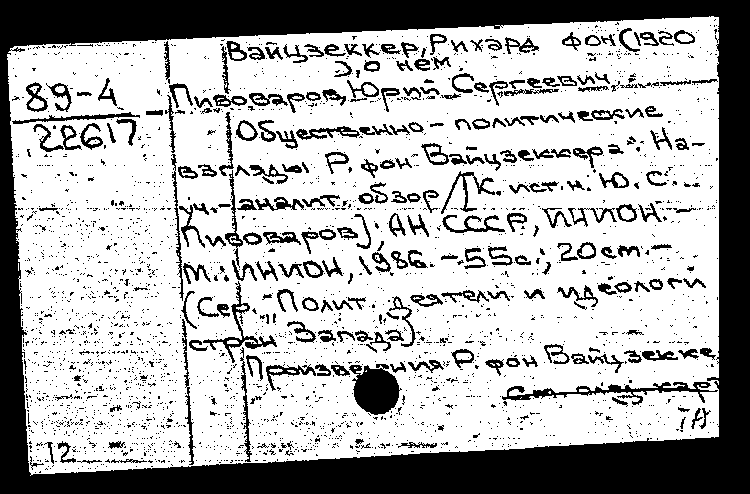 Вайцзеккер, Рихард фон (1920
Э, О нем.
89-4
22617
Пивоваров, Юрий Сергеевич.
Общественно-политические
взгляды Р. фон Вайцзеккера: На-
уч.-аналит. обзор / [К. ист. н. Ю. С.
Пивоваров]; АН СССР, ИНИОН. -
М.: ИНИОН, 1986. - 55с.; 20 см. -
(Сер. "Полит. деятели и идеологи
стран Запада).
Произведения Р. фон Вайцзекке
См. след. карт
ТА
12